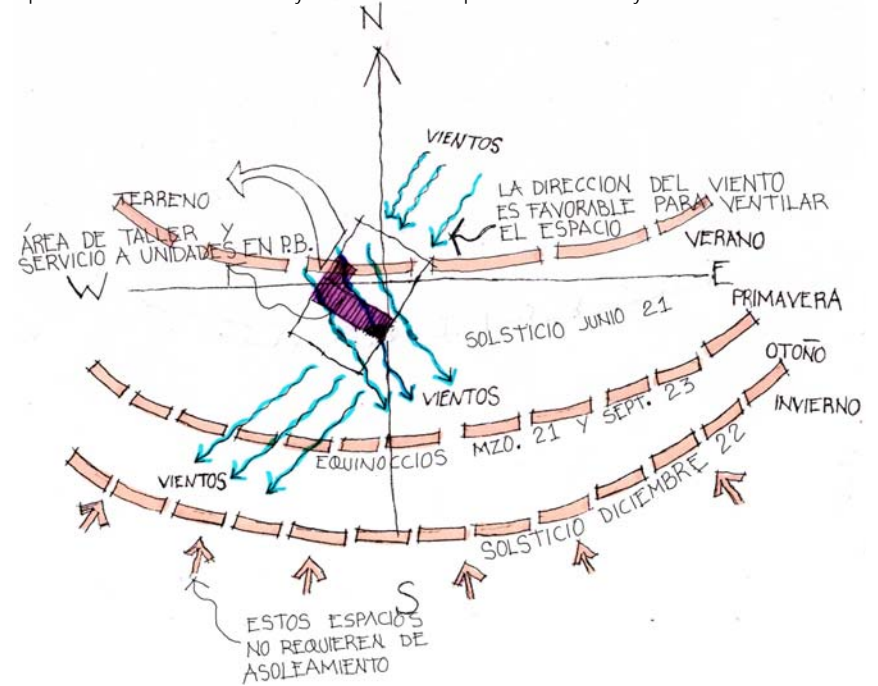 N
VIENTOS
LA DIRECCION DEL VIENTO
ES FAVORABLE PARA VENTILAR
EL ESPACIO
TERRENO
ÁREA DE TALLER Y
SERVICIO A UNIDADES EN P.B.
VERANO
W
E
PRIMAVERA
SOLSTICIO JUNIO 21
OTOÑO
VIENTOS
INVIERNO
EQUINOCCIOS MZO. 21 Y SEPT. 23
VIENTOS
SOLSTICIO DICIEMBRE 22
S
ESTOS ESPACIOS
NO REQUIEREN DE
ASOLEAMIENTO